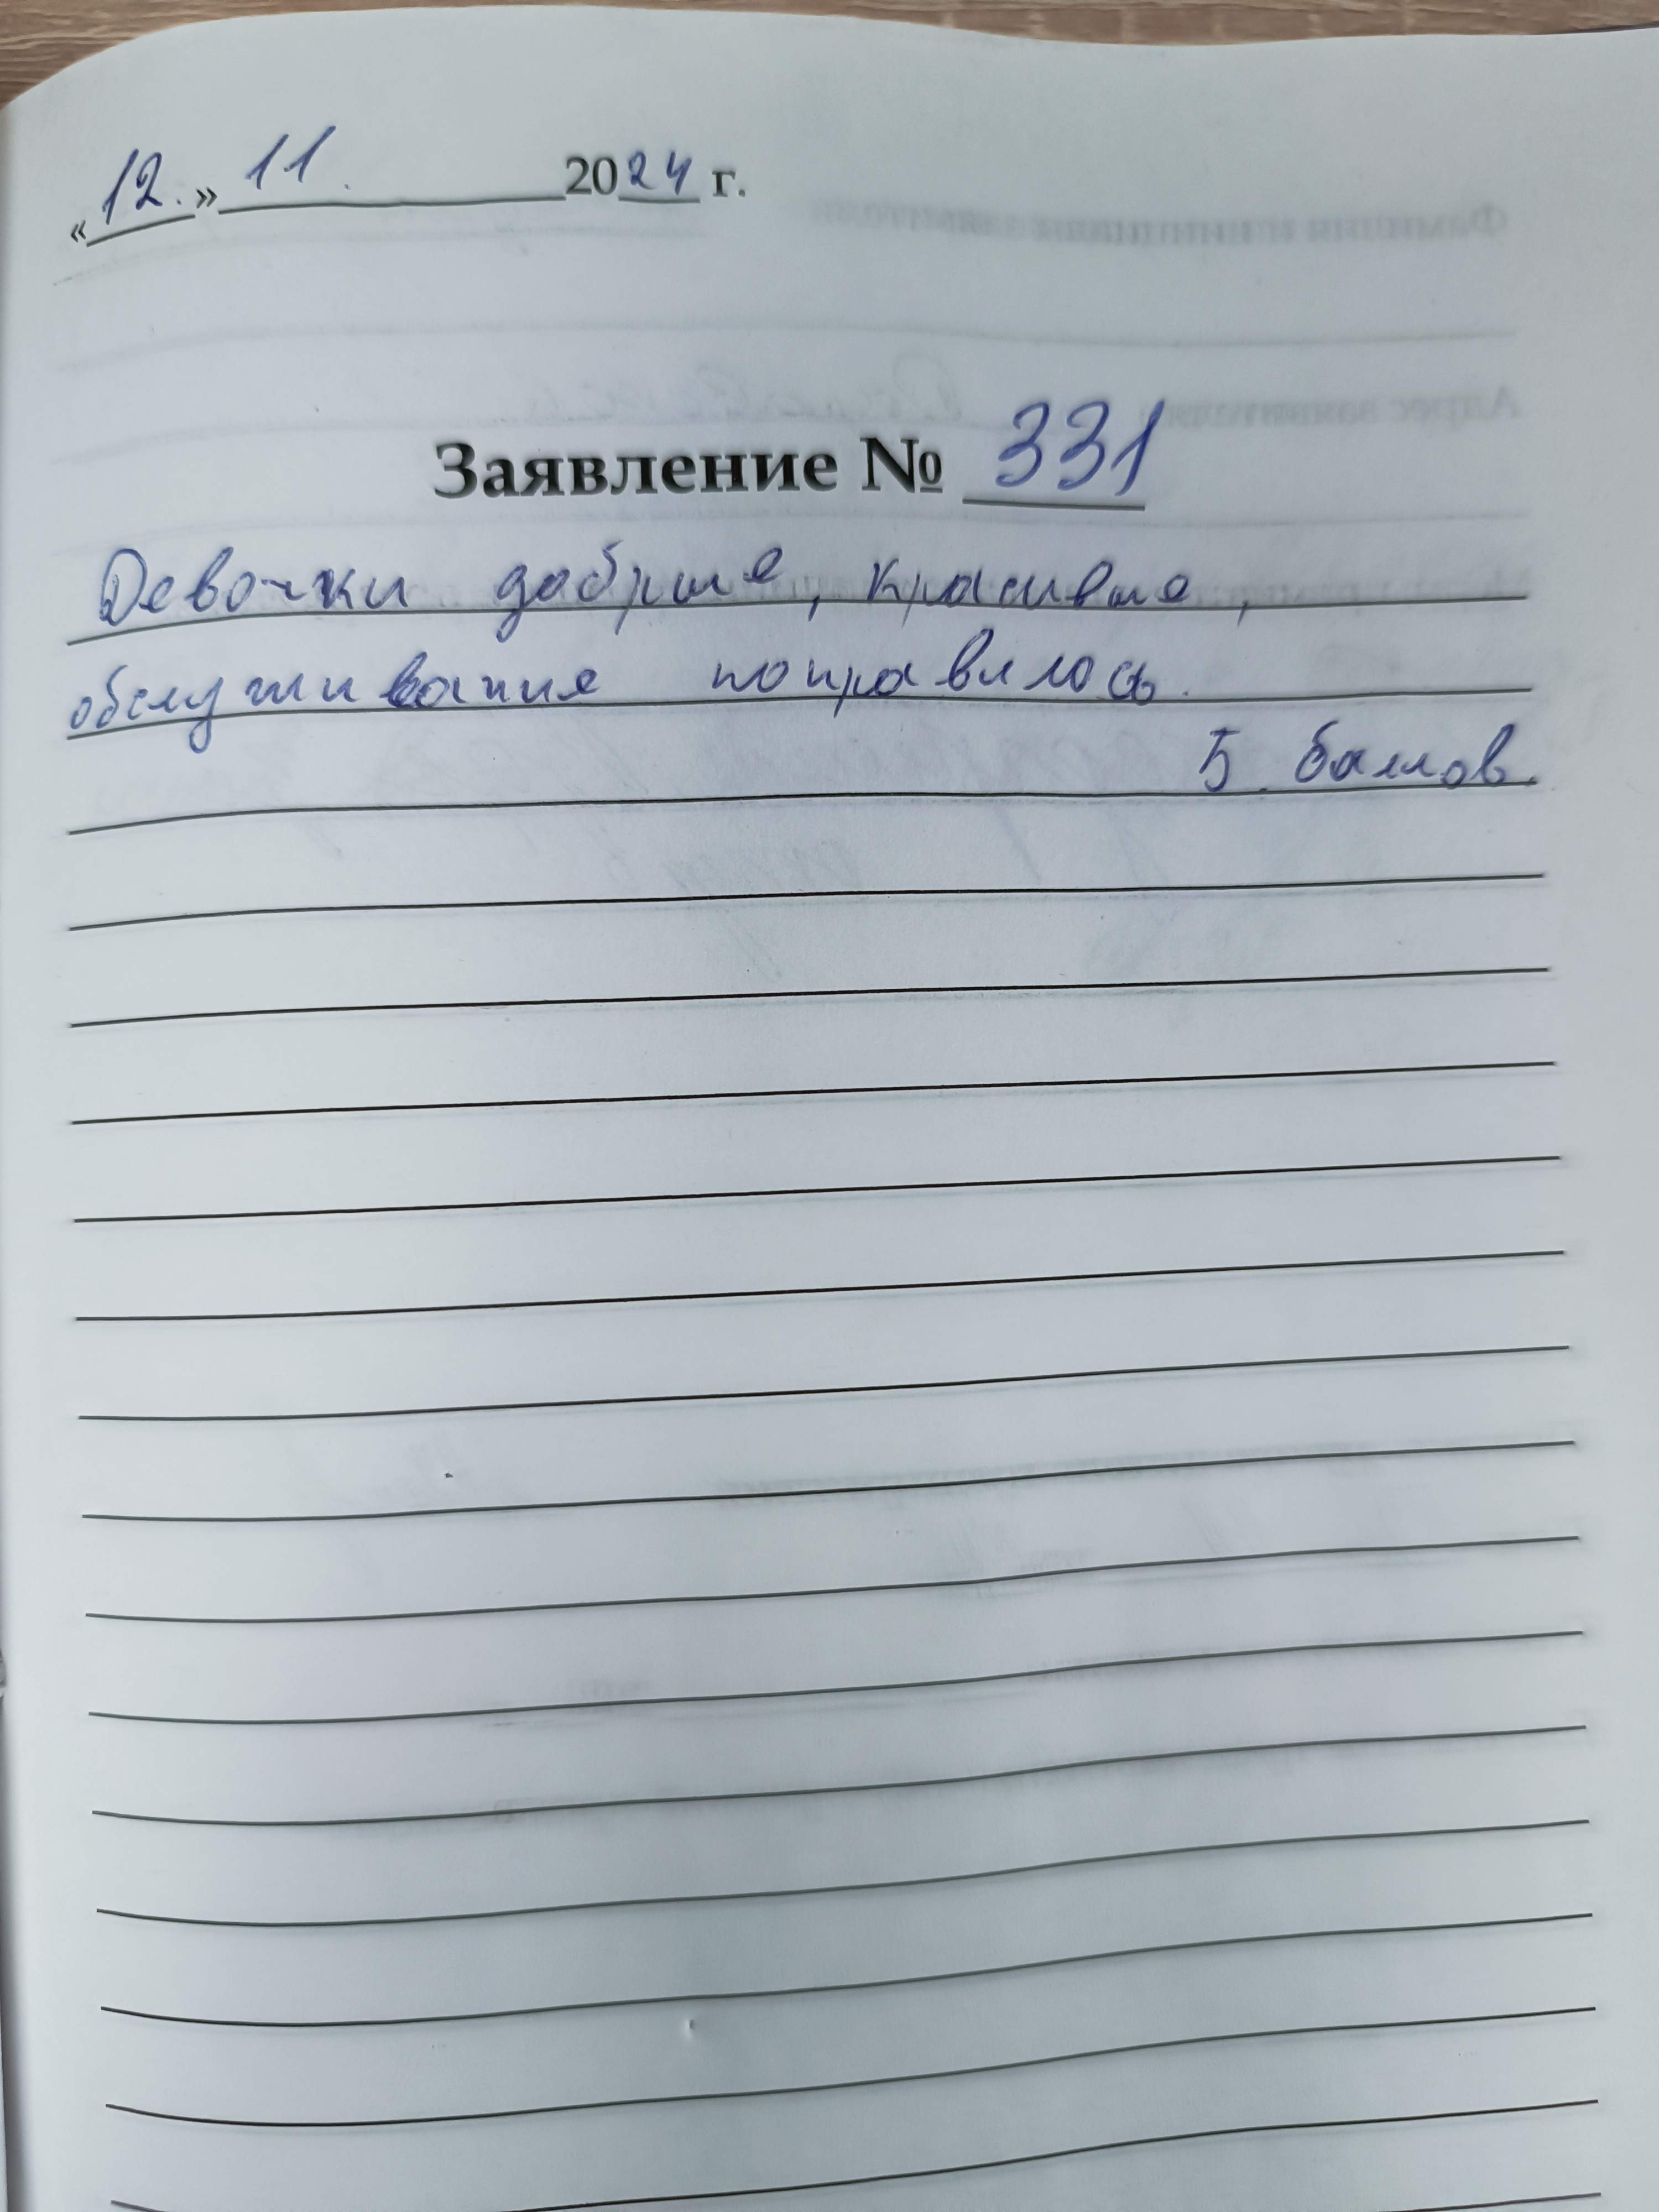 «12.» 11. 2024 г.
Заявление № 331
Девочки добрые, красивые,
обслуживание понравилось.
5 баллов.